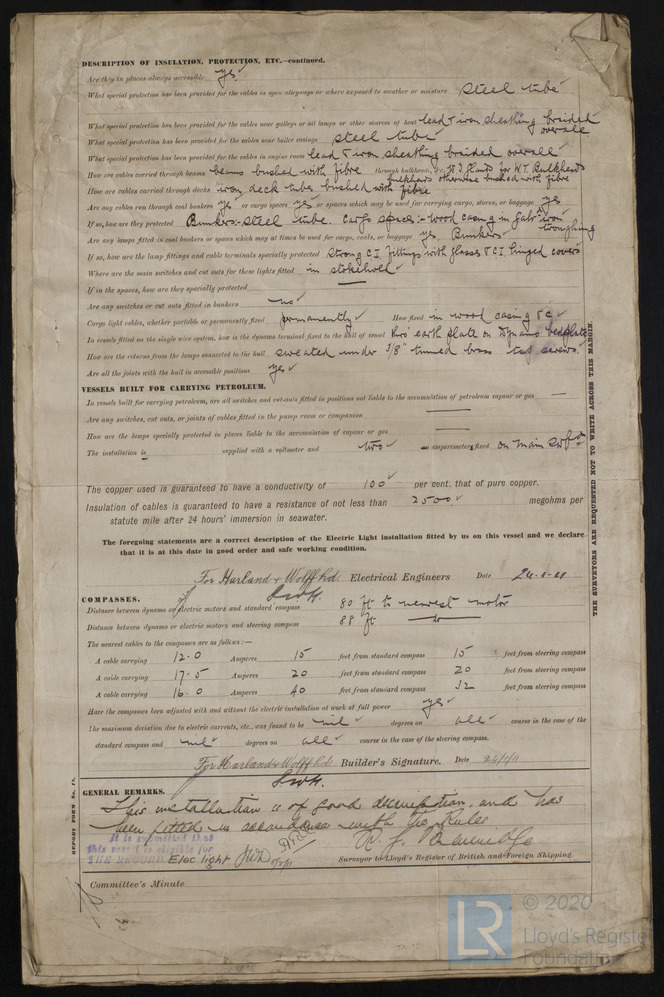 DESCRIPTION OF INSULATION, PROTECTION, ETC.—continued.
Are they in places always accessible yes
What special protection has been provided for the cables in open alleyways or where exposed to weather or moisture steel tube
What special protection has been provided for the cables near galleys or oil lamps or other sources of heat lead & iron sheathing braided overall
What special protection has been provided for the cables near boiler casings steel tube
What special protection has been provided for the cables in engine room lead & iron sheathing braided overall
How are cables carried through beams beams bushed with fibre through bulkheads, &c. W.T. Glands for W.T. Bulkheads
bulkheads otherwise bushed with fibre
How are cables carried through decks iron deck tubes bushed with fibre
Are any cables run through coal bunkers yes or cargo spaces yes or spaces which may be used for carrying cargo, stores, or baggage yes
If so, how are they protected Bunkers:- steel tube. Cargo spaces:- wood casing in iron troughing
Are any lamps fitted in coal bunkers or spaces which may at times be used for cargo, coals, or baggage yes. Bunkers
If so, how are the lamp fittings and cable terminals specially protected strong C.I. fittings with glasses & C.I. hinged covers
Where are the main switches and cut outs for these lights fitted in stokehold
If in the spaces, how are they specially protected —
Are any switches or cut outs fitted in bunkers no
Cargo light cables, whether portable or permanently fixed permanently How fixed in wood casing &c
In vessels fitted on the single wire system, how is the dynamo terminal fixed to the hull of vessel thro' earth plate on Dynamo bedplate
How are the returns from the lamps connected to the hull sweated under 3/8" tinned brass tap screws
Are all the joints with the hull in accessible positions yes
VESSELS BUILT FOR CARRYING PETROLEUM.
In vessels built for carrying petroleum, are all switches and cut-outs fitted in positions not liable to the accumulation of petroleum vapour or gas —
Are any switches, cut outs, or joints of cables fitted in the pump room or companion —
How are the lamps specially protected in places liable to the accumulation of vapour or gas —
The installation is supplied with a voltmeter and two amperemeters fixed on main
The copper used is guaranteed to have a conductivity of 100 per cent. that of pure copper.
Insulation of cables is guaranteed to have a resistance of not less than 2500 megohms per
statute mile after 24 hours' immersion in seawater.
The foregoing statements are a correct description of the Electric Light installation fitted by us on this vessel and we declare
that it is at this date in good order and safe working condition.
For Harland & Wolff Ltd. Electrical Engineers Date
COMPASSES.
Distance between dynamo or electric motors and standard compass 80 ft to nearest motor
Distance between dynamo or electric motors and steering compass 88 ft — do —
The nearest cables to the compasses are as follows:—
A cable carrying 12.0 Amperes 15 feet from standard compass 15 feet from steering compass
A cable carrying 17.5 Amperes 20 feet from standard compass 20 feet from steering compass
A cable carrying 16.0 Amperes 40 feet from standard compass 32 feet from steering compass
Have the compasses been adjusted with and without the electric installation at work at full power yes
The maximum deviation due to electric currents, etc., was found to be nil degrees on all course in the case of the
standard compass and nil degrees on all course in the case of the steering compass.
For Harland & Wolff Ltd. Builder's Signature. Date
GENERAL REMARKS.
This installation is of good description, and has
been fitted in accordance with the Rules
It is submitted that
this vessel is eligible for
THE RECORD. Elec. light
Surveyor to Lloyd's Register of British and Foreign Shipping.
Committee's Minute
REPORT FORM No.
THE SURVEYORS ARE REQUESTED NOT TO WRITE ACROSS THIS MARGIN.
LR
© 2020
Lloyd's Register
Foundation